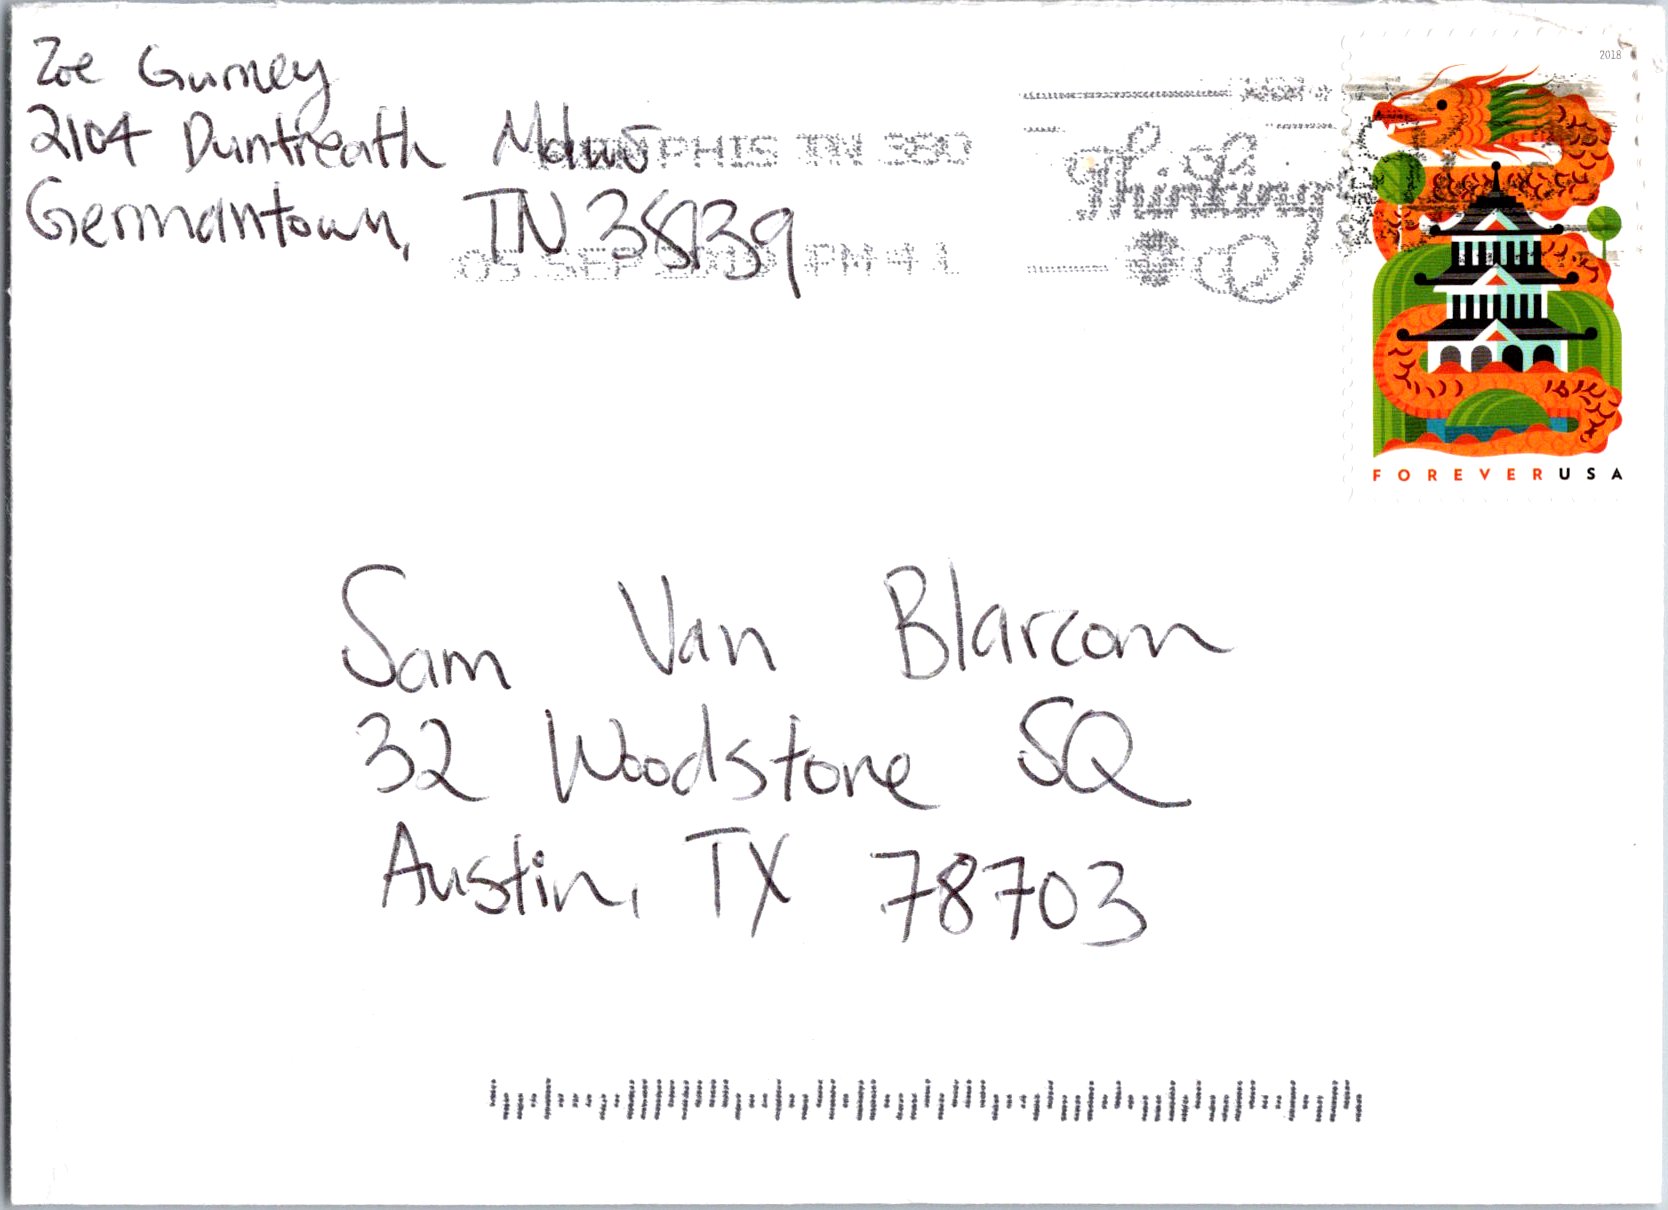 Zoe Gurney
2104 Duntreath Mdws
Germantown, TN 38139
MEMPHIS TN 380
05 SEP PM 4 L
Thinking
2018
FOREVER USA
Sam Van Blarcom
32 Woodstone SQ
Austin, TX 78703